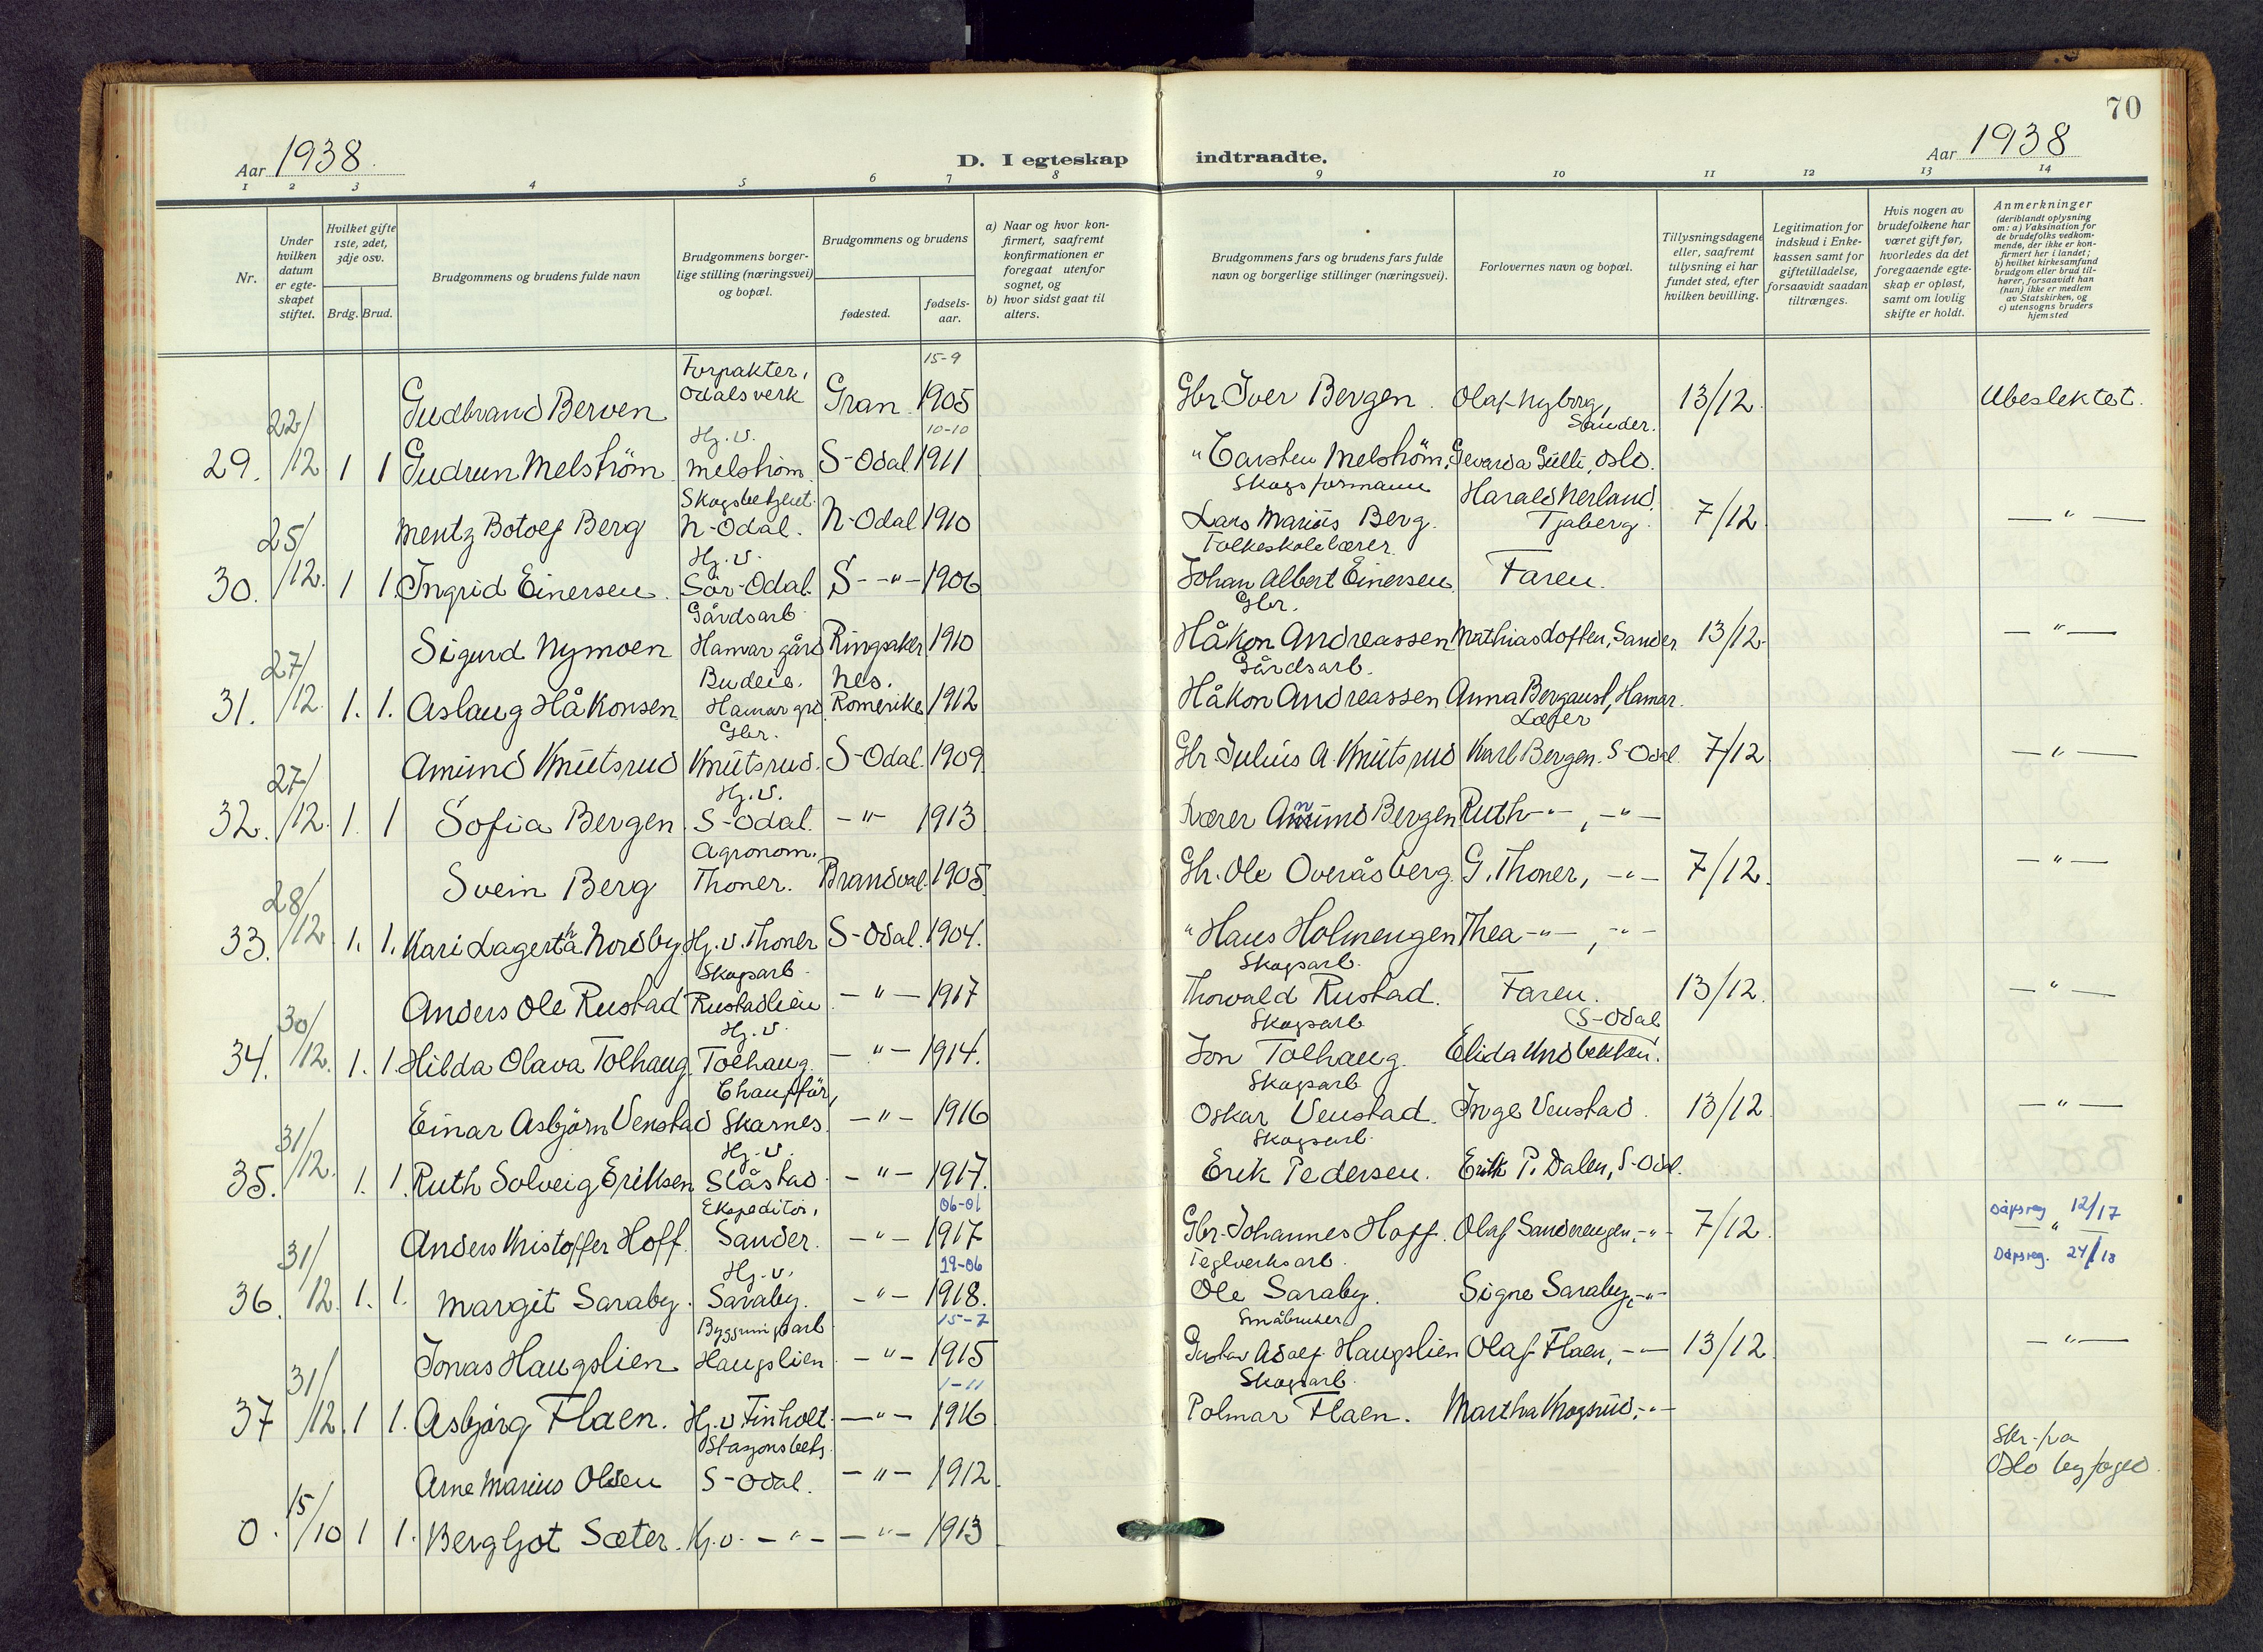 70
Aar 1938.
D. I egteskap indtraadte.
Aar 1938
1 2 3 4 5 6 7 8 9 10 11 12 13 14
Nr.
Under hvilken datum er egteskapet stiftet.
Hvilket gifte 1ste, 2det, 3dje osv.
Brdg. Brud.
Brudgommens og brudens fulde navn
Brudgommens borgerlige stilling (næringsvei) og bopæl.
Brudgommens og brudens
fødested.
fødselsaar.
a) Naar og hvor konfirmert, saafremt konfirmationen er foregaat utenfor sognet, og
b) hvor sidst gaat til alters.
Brudgommens fars og brudens fars fulde navn og borgerlige stillinger (næringsvei).
Forlovernes navn og bopæl.
Tillysningsdagene eller, saafremt tillysning ei har fundet sted, efter hvilken bevilling.
Legitimation for indskud i Enkekassen samt for giftetilladelse, forsaavidt saadan tiltrænges.
Hvis nogen av brudefolkene har været gift før, hvorledes da det foregaaende egteskap er opløst, samt om lovlig skifte er holdt.
Anmerkninger (deriblandt oplysning om: a) Vaksination for de brudefolks vedkommende, der ikke er konfirmert her i landet; b) hvilket kirkesamfund brudgom eller brud tilhører, forsaavidt han (hun) ikke er medlem av Statskirken, og c) utensogns bruders hjemsted
Forpakter, 15-9
Gudbrand Berven Odalsverk Gran 1905 Gbr Iver Bergen. Olaf Nyborg, Sander. 13/12. Ubeslektet.
Hj. v. 10-10
29. 22/12 1 1 Gudrun Melström Melström S-Odal 1911 " Carsten Melström, Gevarda Gulli, Oslo.
Skogsbetjent. Skogsformann
Mentz Botolf Berg N-Odal. N-Odal 1910 Lars Marius Berg. Harald Nerland, Tjaberg. 7/12 — " —
Hj. v. Folkeskolelærer.
30. 25/12. 1 1. Ingrid Einersen. Sör-Odal. S- -"- 1906 Johan Albert Einersen. Faren.
Gårdsarb. Gbr.
Sigurd Nymoen Hamar gård Ringsaker 1910 Håkon Andreassen Mathias Loften, Sander 13/12. — " —
Budeie. Nes. Gårdsarb.
31. 27/12. 1. 1. Aslaug Håkonsen Hamar grd. Romerike 1912 Håkon Andreassen. Anna Bergaust, Hamar.
Gbr. Læger
Amund Knutsrud Knutsrud. S-Odal. 1909. Gbr Julius A. Knutsrud Karl Bergen. S-Odal. 7/12 — " —
Hj. v.
32. 27/12. 1. 1 Sofia Bergen S-Odal. — " — 1913 Lærer Amund Bergen Ruth -"-, -"-
Agronom.
Svein Berg Thoner. Brandval. 1905. Gbr. Ole Overåsberg. G. Thoner, -"- 7/12. — " —
33. 28/12 1. 1. Kari Lagertha Nordby Hj. v. Thoner S-Odal. 1904. " Hans Holmengen Thea -"-, -"-
Skogsarb. Skogsarb.
Anders Ole Rustad Rustadlien — " — 1917 Thorvald Rustad. Faren. 13/12. — " —
Hj. v. Skogsarb. S-Odal
34. 30/12. 1. 1. Hilda Olava Tolhaug Tolhaug. — " — 1914. Jon Tolhaug. Elida Undbekken.
Chauffør, Skogsarb
Einar Asbjörn Venstad Skarnes. — " — 1916 Oskar Venstad. Inge Venstad. 13/12 — " —
Hj. v. Skogsarb.
35. 31/12. 1. 1. Ruth Solveig Eriksen Slåstad. — " — 1917. Erik Pedersen. Erik P. Dalen, S-Odal.
Ekspeditör, 06-01 Dåpsreg 12/17
Anders Kristoffer Hoff. Sander. — " — 1917 Gbr. Johannes Hoff. Olaf Sanderengen, -"- 7/12. — " —
Hj. v. 29-06 Teglverksarb. Dåpsreg. 24/18
36. 31/12. 1. 1. Margit Saraby. Saraby. — " — 1918. Ole Saraby. Signe Saraby, -"-
Bygningsarb 15-7 Småbruker
Jonas Haugslien Haugslien — " — 1915 Gustav Adolf Haugslien Olaf Flaen, -"- 13/12 — " —
1-11 Skogsarb.
37 31/12. 1 1. Asbjørg Flaen. Hj. v Finholt. — " — 1916 Polmar Flaen. Martha Krogsrud, -"-
Stasjonsbetj. Skr. fra
Arne Marius Olsen S-Odal. — " — 1912. Oslo byfoged.
0. 15/10 1 1. Bergljot Sæter. Hj. v. — " — — " — 1913